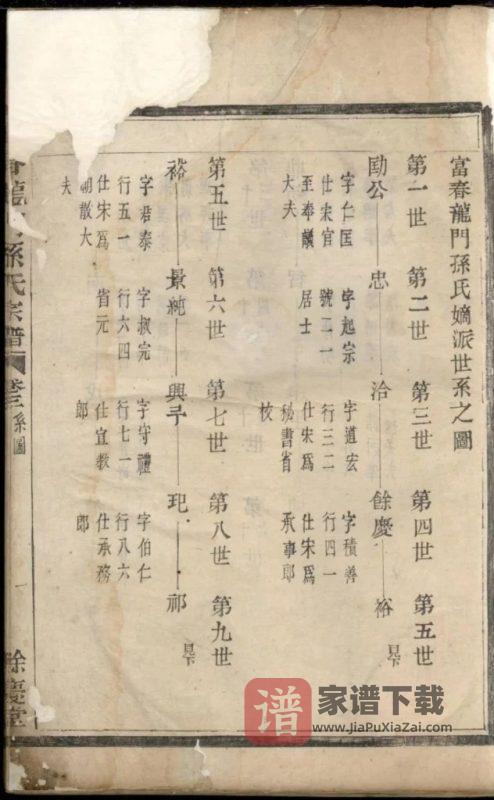 富春龍門孫氏嫡派世系之圖
第一世 第二世 第三世 第四世 第五世
勛公 忠 洽 餘慶 裕 見下
字仁匡
仕宋官
至奉議
大夫
字起宗
號二一
居士
字道宏
行三二
仕宋為
秘書省
校
字積善
行四一
仕宋為
承事郎
第五世 第六世 第七世 第八世 第九世
裕 景純 興 玘 祁 見下
字君泰
行五一
仕宋為
朝散大
夫
字叔完
行六四
省元
字守禮
行七一
仕宣教
郎
字伯仁
行八六
仕承務
郎
龍門孫氏宗譜 卷三 系圖 一 餘慶堂
谱 家谱下载
www.JiaPuXiaZai.com